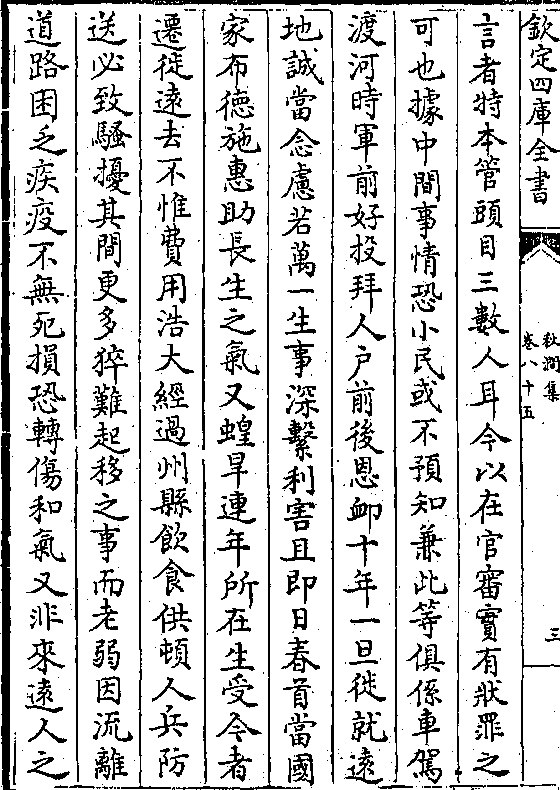 欽定四庫全書
秋澗集
卷八十五
三
言者特本管頭目三數人耳今以在官審實有狀罪之
可也據中間事情恐小民或不預知兼此等俱係車駕
渡河時軍前好投拜人户前後恩衂十年一旦徙就遠
地誠當念慮若萬一生事深繫利害且即日春首當國
家布德施惠助長生之氣又蝗旱連年所在生受今者
遷徙遠去不惟費用浩大經過州縣飲食供頓人兵防
送必致騷擾其間更多猝難起移之事而老弱因流離
道路困乏疾疫不無死損恐轉傷和氣又非來遠人之